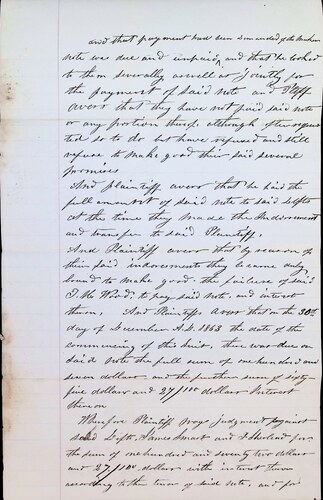 and that payment had been demanded of the makers
note was due and unpaid, and that he looked
to them severally as well as jointly for
the payment of said note and Plff
avers that they have not paid said note
or any portion thereof although often requested
so to do but have refused and still
refuse to make good their said several
promises
And plaintiff avers that he paid the
full amount of said note to said Defts
at the time they made the Indorsement
and transfer to said Plaintiff,
And Plaintiff avers that by reason of
their said indorsements they became
bound to make good the failure of said
Wood, to pay said note, and interest
And Plaintiff avers that on the 30th
day of December A.D. 1863 the date of the
commencing of this suit, there was due on
said note the full sum of one hundred and
seven dollars, and the further sum of sixty-
five dollars and 27/100 dollars Interest
thereon
Wherefore Plaintiff Prays judgment against
said Defts, James Smart and for
the sum of one hundred and seventy two dollars
and 27/100 dollars with interest thereon
according to the tenor of said note, and for